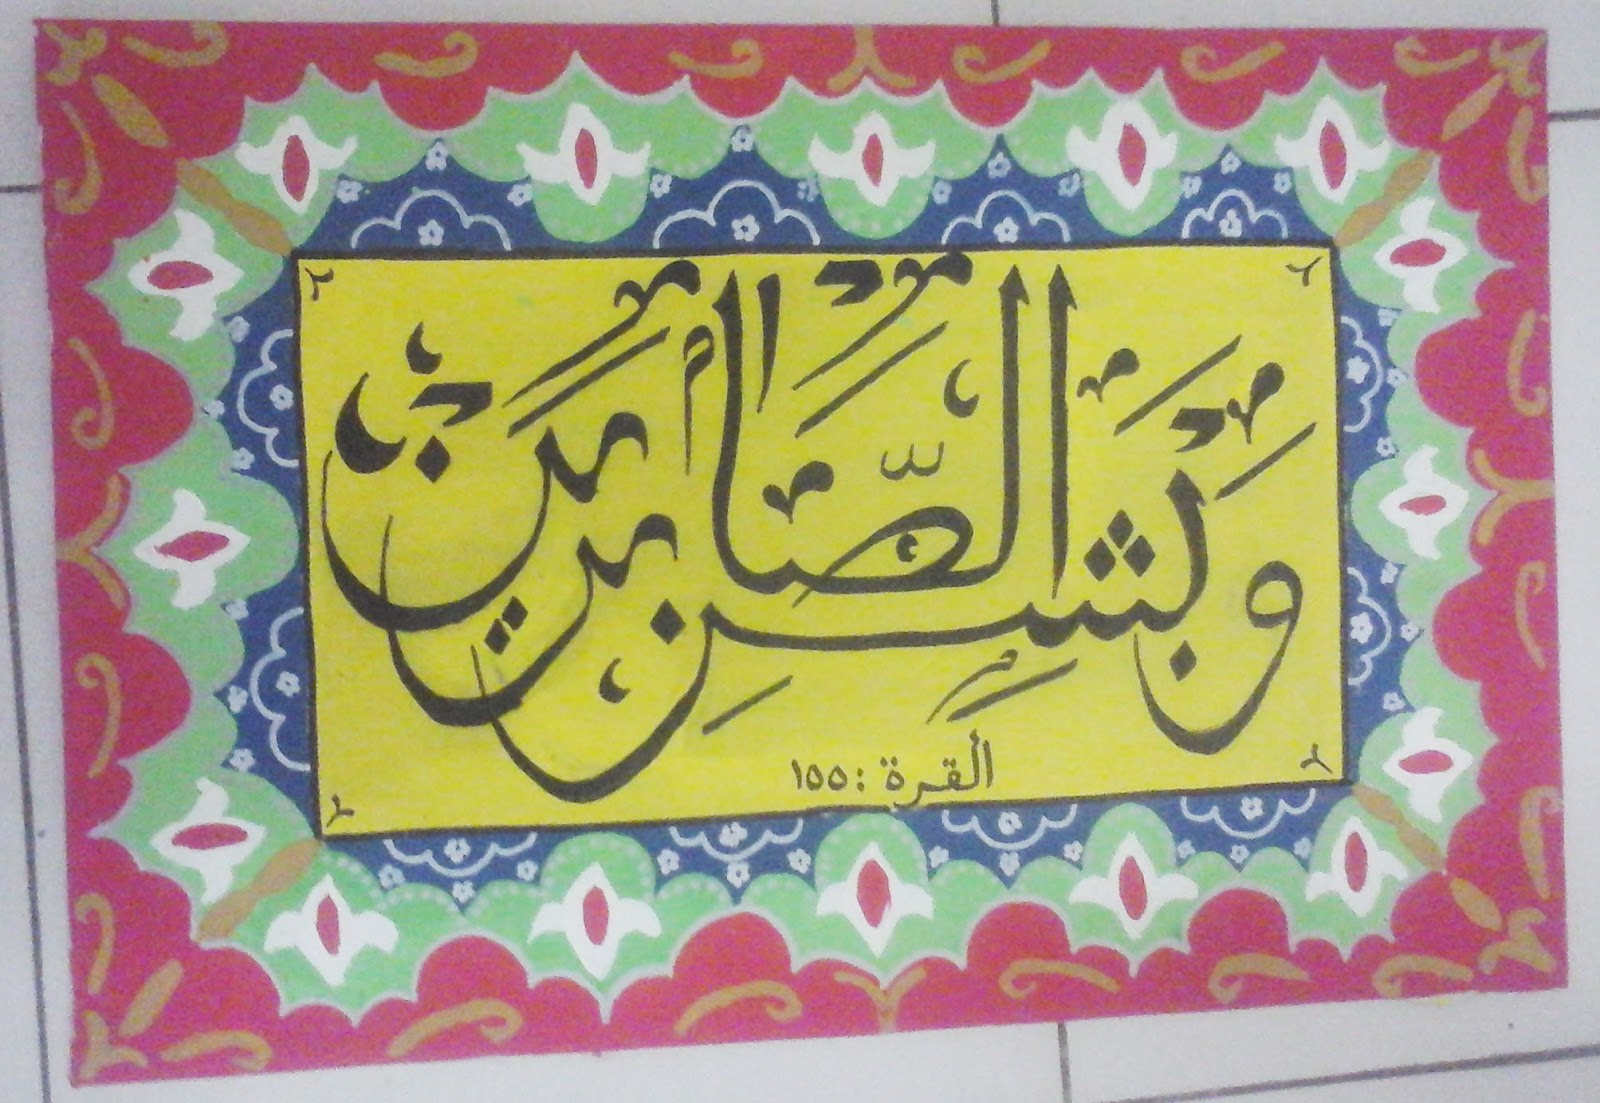 وَبَشِّرِ الصَّابِرِينَ
ألقرة : ١٥٥